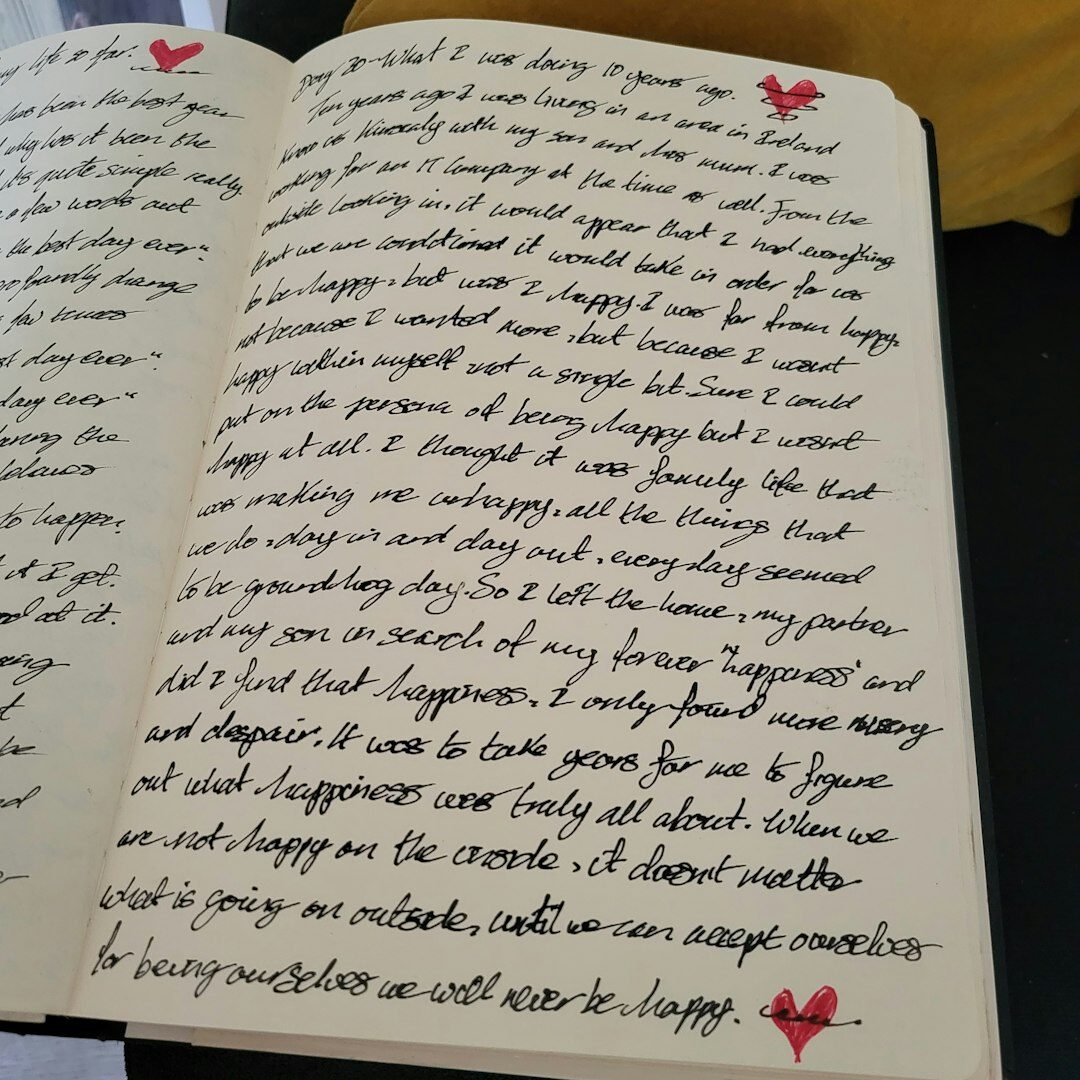 my life so far.
has been the best year
why has it been the
Its quite simple really
a few words out
the best day ever"
profoundly change
few times
day ever"
day ever"
the
to happen.
it I get.
at it.
Day 20 - What I was doing 10 years ago.
Ten years ago I was living in an area in Ireland
know as Kinsealy with my son and his mum. I was
working for an IT company at the time as well. From the
outside looking in, it would appear that I had everything
that we are conditioned it would take in order for us
to be happy, but was I happy. I was far from happy,
not because I wanted more, but because I wasnt
happy within myself, not a single bit. Sure I could
put on the persona of being happy but I wasnt
happy at all. I thought it was family life that
was making me unhappy, all the things that
we do, day in and day out, every day seemed
to be groundhog day. So I left the home, my partner
and my son in search of my forever "happiness" and
did I find that happiness, I only found more misery
and despair. It was to take years for me to figure
out what happiness was truly all about. When we
are not happy on the inside, it doesnt matter
what is going on outside, until we can accept ourselves
for being ourselves we will never be happy.